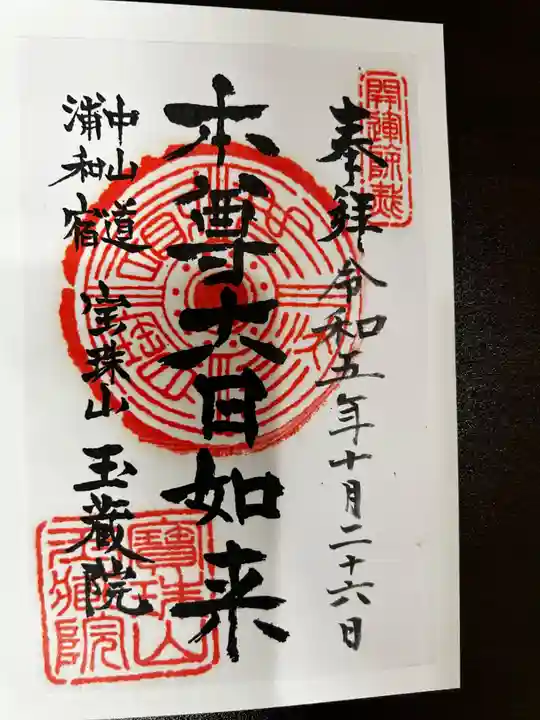 奉拝 令和五年十月二十六日
本尊大日如来
中山道
浦和宿
宝珠山 玉蔵院
寳珠山
玉蔵院